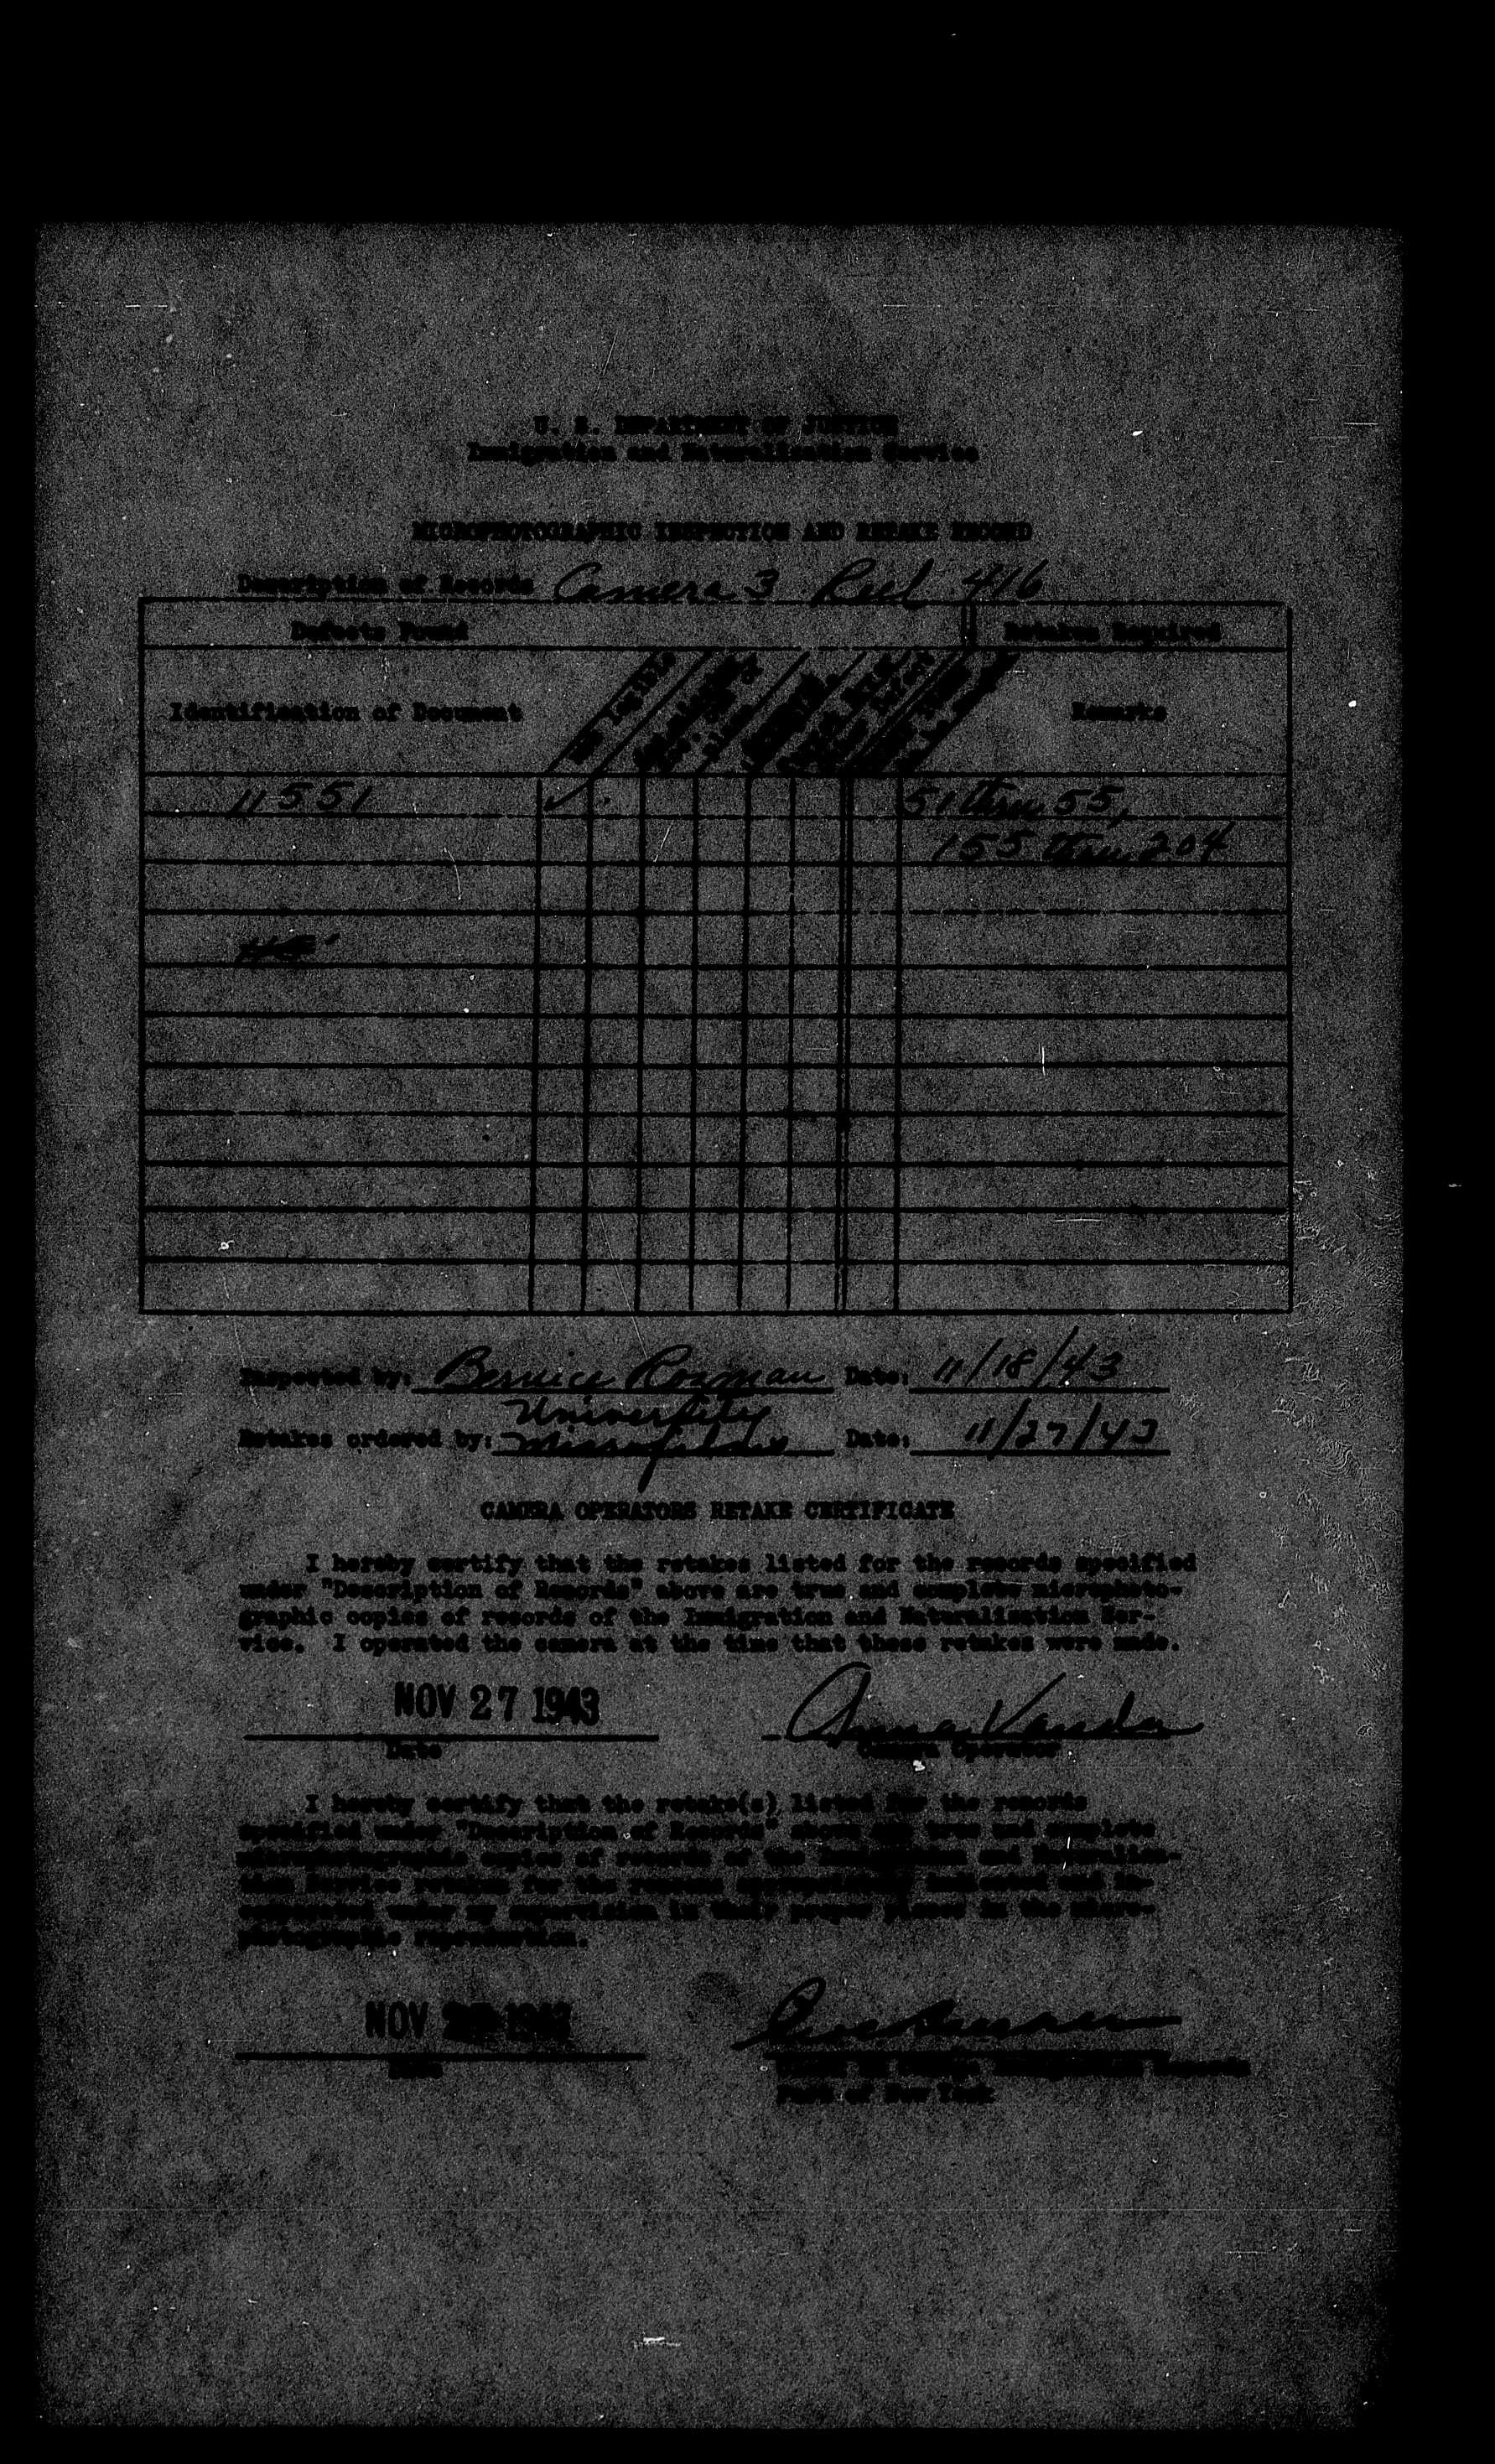 U. S. DEPARTMENT OF JUSTICE
Immigration and Naturalization Service
MICROPHOTOGRAPHIC INSPECTION AND RETAKE RECORD
Description of Records Camera 3 Reel 416
Defects Found Retakes Required
Identification of Document Remarks
11551 ✓ 51 thru 55,
155 thru 204
Inspected by: Bernice Rozman Date: 11/18/43
University
Retakes ordered by: Microfilms Date: 11/27/43
CAMERA OPERATORS RETAKE CERTIFICATE
I hereby certify that the retakes listed for the records specified
under "Description of Records" above are true and complete microphoto-
graphic copies of records of the Immigration and Naturalization Ser-
vice. I operated the camera at the time that these retakes were made.
NOV 27 1943 Anna Vanda
Date Camera Operator
I hereby certify that the retake(s) listed for the records
specified under "Description of Records" above are true and complete
microphotographic copies of records of the Immigration and Naturaliza-
tion Service retaken for the reasons
under my supervision in their proper places in the micro-
photographic reproduction.
NOV 1943
Date
Port of New York